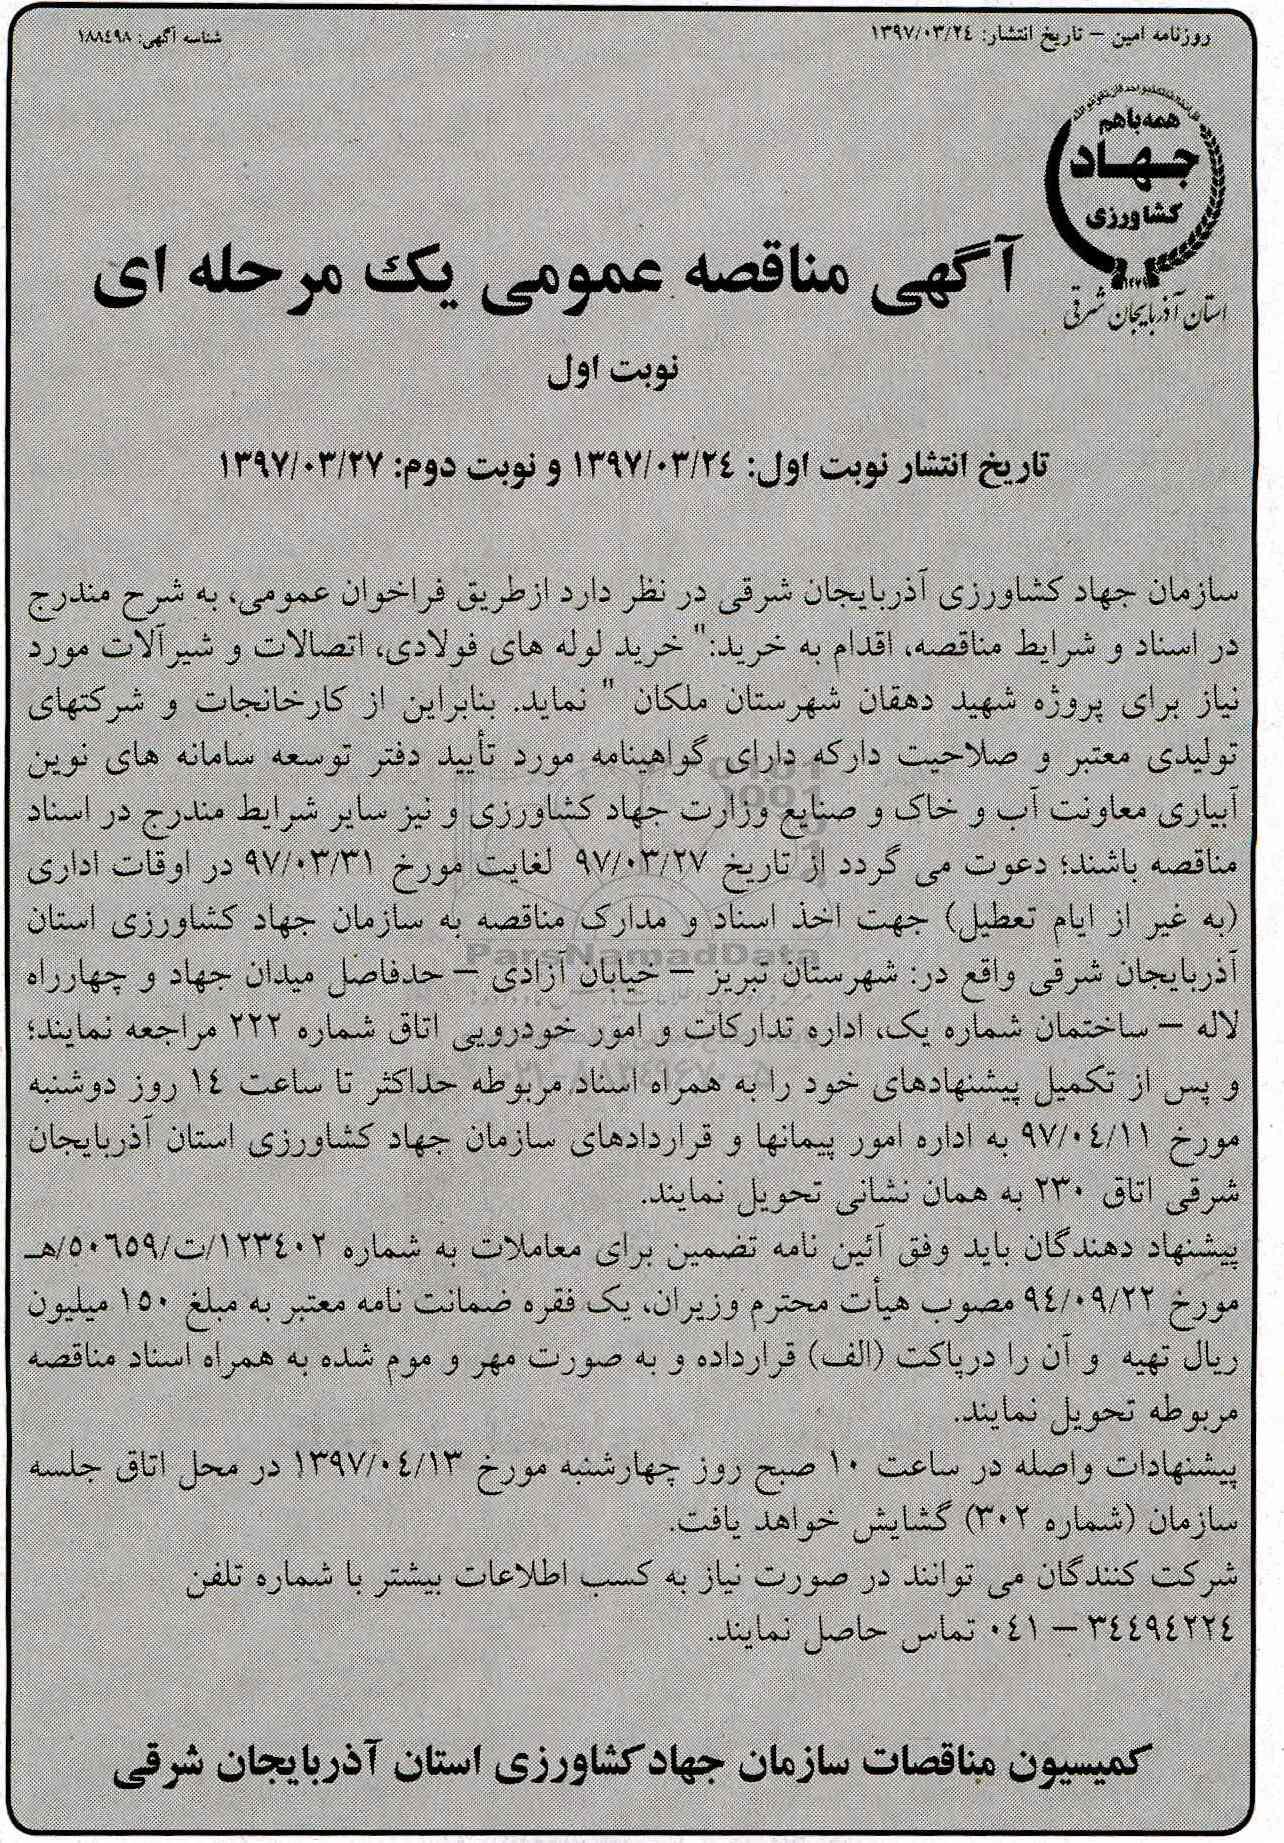 روزنامه امین – تاریخ انتشار: ۱۳۹۷/۰۳/۲٤
شناسه آگهی: ۱۸۸٤۹۸
همه باهم
جهاد
کشاورزی
استان آذربایجان شرقی
آگهی مناقصه عمومی یک مرحله ای
نوبت اول
تاریخ انتشار نوبت اول: ۱۳۹۷/۰۳/۲٤ و نوبت دوم: ۱۳۹۷/۰۳/۲۷
سازمان جهاد کشاورزی آذربایجان شرقی در نظر دارد ازطریق فراخوان عمومی، به شرح مندرج
در اسناد و شرایط مناقصه، اقدام به خرید:" خرید لوله های فولادی، اتصالات و شیرآلات مورد
نیاز برای پروژه شهید دهقان شهرستان ملکان " نماید. بنابراین از کارخانجات و شرکتهای
تولیدی معتبر و صلاحیت دارکه دارای گواهینامه مورد تأیید دفتر توسعه سامانه های نوین
آبیاری معاونت آب و خاک و صنایع وزارت جهاد کشاورزی و نیز سایر شرایط مندرج در اسناد
مناقصه باشند؛ دعوت می گردد از تاریخ ۹۷/۰۳/۲۷ لغایت مورخ ۹۷/۰۳/۳۱ در اوقات اداری
(به غیر از ایام تعطیل) جهت اخذ اسناد و مدارک مناقصه به سازمان جهاد کشاورزی استان
آذربایجان شرقی واقع در: شهرستان تبریز – خیابان آزادی – حدفاصل میدان جهاد و چهارراه
لاله – ساختمان شماره یک، اداره تدارکات و امور خودرویی اتاق شماره ۲۲۲ مراجعه نمایند؛
و پس از تکمیل پیشنهادهای خود را به همراه اسناد مربوطه حداکثر تا ساعت ۱٤ روز دوشنبه
مورخ ۹۷/۰٤/۱۱ به اداره امور پیمانها و قراردادهای سازمان جهاد کشاورزی استان آذربایجان
شرقی اتاق ۲۳۰ به همان نشانی تحویل نمایند.
پیشنهاد دهندگان باید وفق آئین نامه تضمین برای معاملات به شماره ۱۲۳٤۰۲/ت/۵۰٦۵۹/هـ
مورخ ۹٤/۰۹/۲۲ مصوب هیأت محترم وزیران، یک فقره ضمانت نامه معتبر به مبلغ ۱۵۰ میلیون
ریال تهیه و آن را درپاکت (الف) قرارداده و به صورت مهر و موم شده به همراه اسناد مناقصه
مربوطه تحویل نمایند.
پیشنهادات واصله در ساعت ۱۰ صبح روز چهارشنبه مورخ ۱۳۹۷/۰٤/۱۳ در محل اتاق جلسه
سازمان (شماره ۳۰۲) گشایش خواهد یافت.
شرکت کنندگان می توانند در صورت نیاز به کسب اطلاعات بیشتر با شماره تلفن
۳٤٤۹٤۲۲٤ – ۰٤۱ تماس حاصل نمایند.
کمیسیون مناقصات سازمان جهاد کشاورزی استان آذربایجان شرقی
ParsNamadData